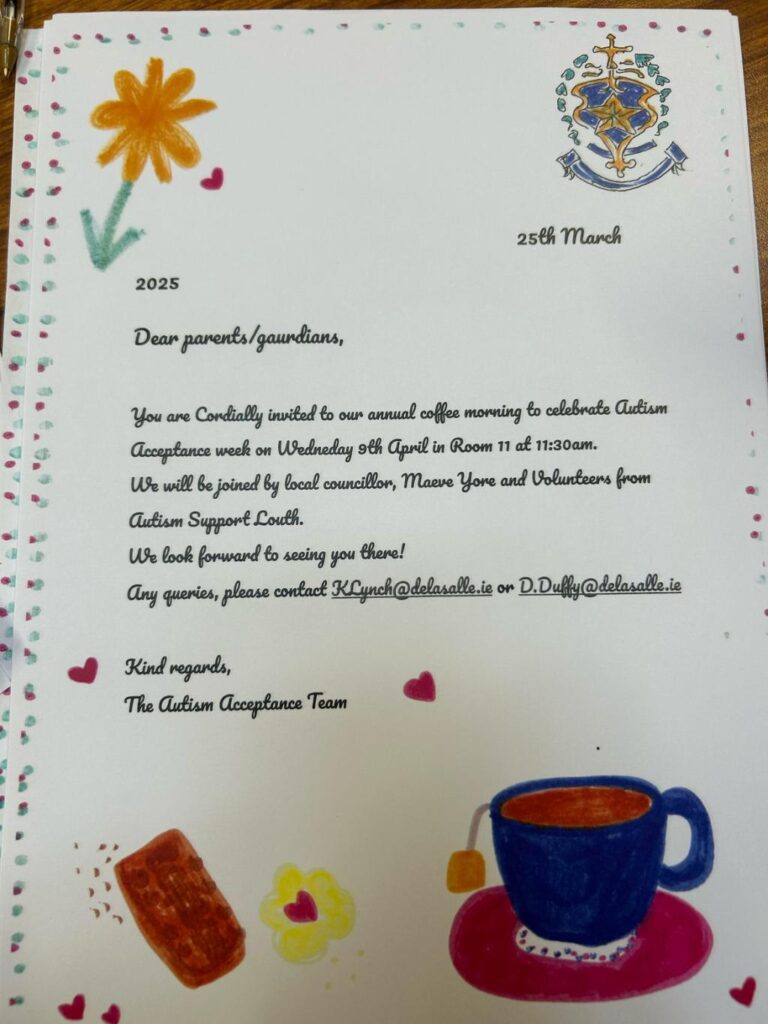 25th March
2025
Dear parents/gaurdians,
You are Cordially invited to our annual coffee morning to celebrate Autism
Acceptance week on Wedneday 9th April in Room 11 at 11:30am.
We will be joined by local councillor, Maeve Yore and Volunteers from
Autism Support Louth.
We look forward to seeing you there!
Any queries, please contact KLynch@delasalle.ie or D.Duffy@delasalle.ie
Kind regards,
The Autism Acceptance Team